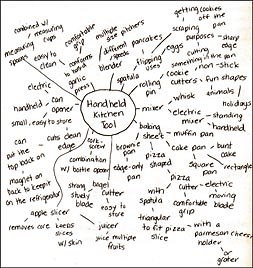 combined w/
measuring
cups
measuring
spoons
easy to
clean
comfortable
grip
conforms
to
hand
garlic
press
multiple
size pitchers
different
speeds
blender
pancakes
eggs
flipping
uses
spatula
getting cookies
off the
pan
scraping
purposes
sharp
edge
cutting
something in the pan
non stick
rolling
pin
cookie
cutters
fun shapes
animals
holidays
whisk
mixer
electric
standing
handheld
Handheld
Kitchen
Tool
electric
handheld
can
opener
small, easy to store
can
put the
top back on
cuts clean
edge
magnet on
back to keep it
on the refrigerator
cork-
screw
combination
w/ bottle opener
baking
sheet
muffin pan
brownie
pan
edge-only
shaped
pizza
pan
cake pan
bunt
cake
square
pan
rectangle
strong
study
blade
bagel
cutter
easy to
store
apple slicer
removes core
keeps
slices
w/ skin
juicer
juice multiple
fruits
pizza
cutter
with
spatula
comfortable
grip
electric
moving
blade
triangular
to fit pizza
slice
with a
parmesan cheese
holder
or
grater